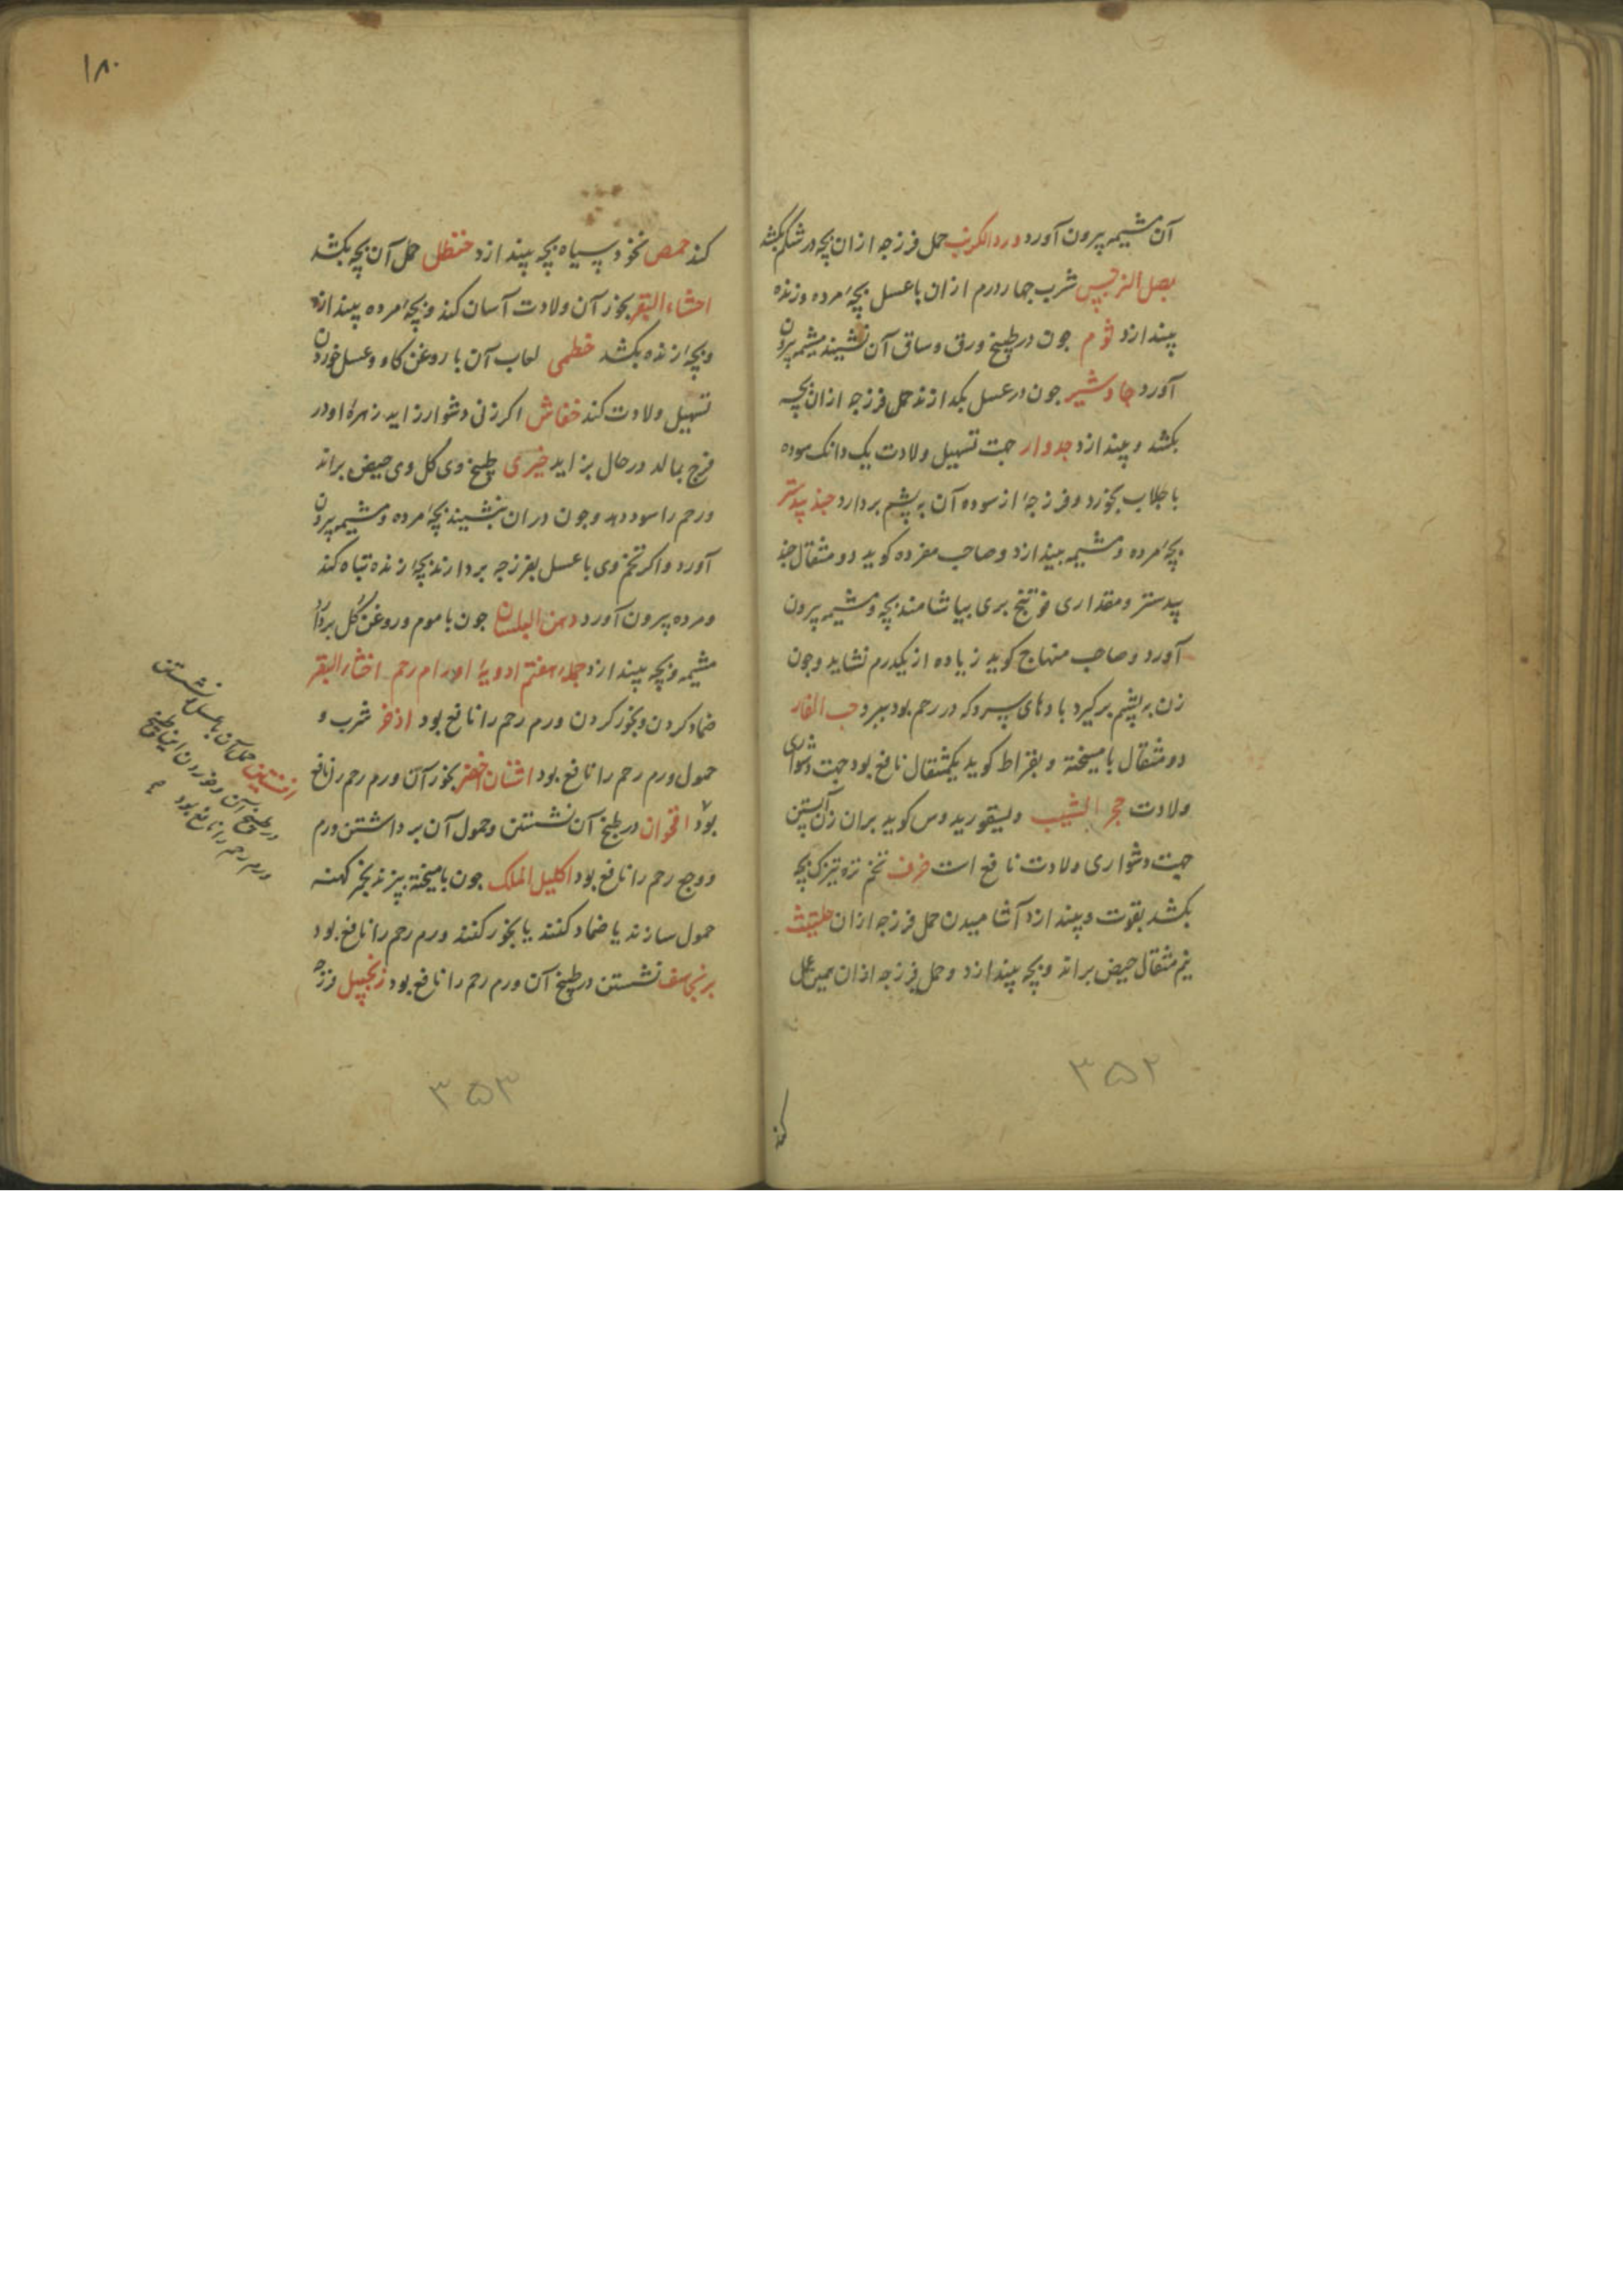 آن مشیمه بیرون آورد ورد الکرنب حمل فرزجه ازان بچه در شکم بکشد
بصل النرجس شرب چهار درم ازان با عسل بچهٔ مرده و زنده
بیندازد ثوم جون در طبیخ ورق و ساق آن نشیند مشیمه بیرون
آورد جاوشیر جون در عسل بکدازند حمل فرزجه ازان بچه
بکشد و بیندازد جدوار جهت تسهیل ولادت یک دانک سوده
با جلاب بخورد و فرزجهٔ از سوده آن به پشم بردارد جند بیدستر
بچهٔ مرده و مشیمه بیندازد و صاحب مفرده کوید دو مثقال جند
بیدستر و مقداری فوتنج بری بیاشامند بچه و مشیمه بیرون
آورد و صاحب منهاج کوید زیاده از یکدرم نشاید و جون
زن به پشم برکیرد بادهای سرد که در رحم بود ببرد حب الغار
دو مثقال با میبخته و بقراط کوید یکمثقال نافع بود جهت دشواری
ولادت حجر الشیب دیسقوریدوس کوید بران زن آبستن
جهت دشواری ولادت نافع است حرف تخم تره تیزک بچه
بکشد بقوت و بیندازد آشامیدن حمل فرزجه ازان حلتیت
نیم مثقال حیض براند و بچه بیندازد و حمل فرزجه ازان همین عمل
۳۵۲
کند
۱۸۰
کند حمص نخود سیاه بچه بیندازد حنظل حمل آن بچه بکشد
احشاء البقر بخور آن ولادت آسان کند و بچهٔ مرده بیندازد
و بچهٔ زنده بکشد خطمی لعاب آن با روغن کاو و عسل خوردن
تسهیل ولادت کند خفاش اکر زنی دشوار زاید زهرهٔ او در
فرج بمالد در حال بزاید خیری طبیخ وی کل وی حیض براند
و رحم را سود دهد و جون دران بنشیند بچهٔ مرده و مشیمه بیرون
آورد و اکر تخم وی با عسل بفرزجه بردارند بچهٔ زنده تباه کند
و مرده بیرون آورد دهن البلسان جون با موم و روغن کل بردارد
مشیمه و بچه بیندازد جمله هفتم ادویهٔ اورام رحم اخثار البقر
ضماد کردن و بخور کردن ورم رحم را نافع بود اذخر شرب و
حمول ورم رحم را نافع بود اشنان اخضر بخور آن ورم رحم را نافع
بود اقحوان در طبیخ آن نشستن و حمول آن برداشتن ورم
و وجع رحم را نافع بود اکلیل الملک جون با میبخته بپزند بخر کهنه
حمول سازند یا ضماد کنند یا بخور کنند ورم رحم را نافع بود
برنجاسف نشستن در طبیخ آن ورم رحم را نافع بود زنجبیل فرزجه
۳۵۳
افسنتین حمل آن با عسل و نشستن
در طبیخ آن و خوردن
ورم رحم را نافع بود